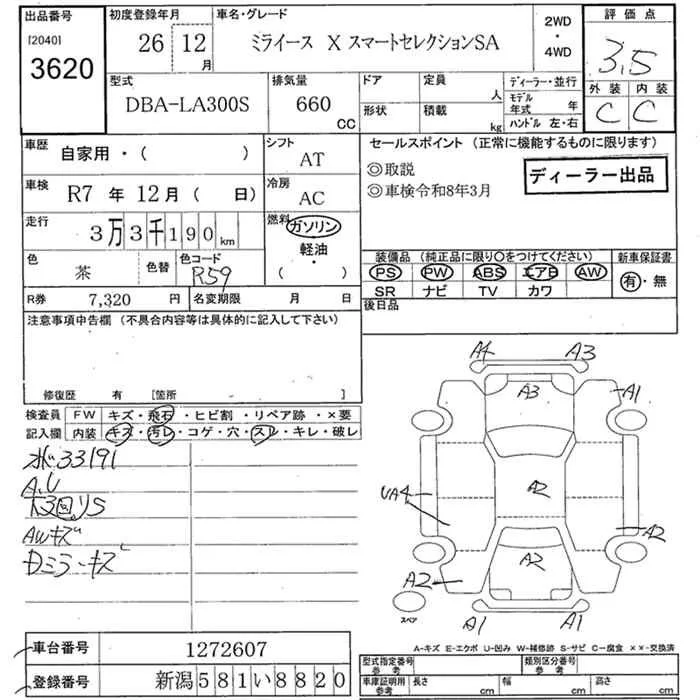 出品番号 初度登録年月 車名・グレード 2WD ・ 4WD 評価点
[2040] 3620 26 12月 ミライース X スマートセレクションSA 3.5
型式 排気量 ドア 定員 人 ディーラー・並行 外装 内装
DBA-LA300S 660 CC 形状 積載 kg モデル年式 年 C C
ハンドル 左・右
車歴 自家用・( ) シフト AT セールスポイント (正常に機能するものに限ります)
◎取説
◎車検令和8年3月
ディーラー出品
車検 R7 年 12月 ( 日) 冷房 AC
走行 3万3千190km 燃料 ガソリン
軽油・
( )
色 茶 色替 色コード R59
装備品 (純正品に限り〇をつけてください) 新車保証書
PS PW ABS エアB AW 有・無
SR ナビ TV カワ
R券 7,320 円 名変期限 月 日 後日品
注意事項申告欄 (不具合内容等は具体的に記入して下さい)
修復歴 有 [箇所 ]
検査員 FW キズ・飛石・ヒビ割・リペア跡・×要
記入欄 内装 キズ・汚レ・コゲ・穴・スレ・キレ・破レ
33191
A.U
AWキズ
ミラーキズ
A4 A3
A3 A1
A2
UA4
A2
A2 A2
スペア A1 A1
A-キズ E-エクボ U-凹み W-補修跡 S-サビ C-腐食 ××-交換済
車台番号 1272607
登録番号 新潟581い8820
型式指定番号 参考 類別区分番号 参考
車庫証明用 参考 長さ cm 幅 cm 高さ cm